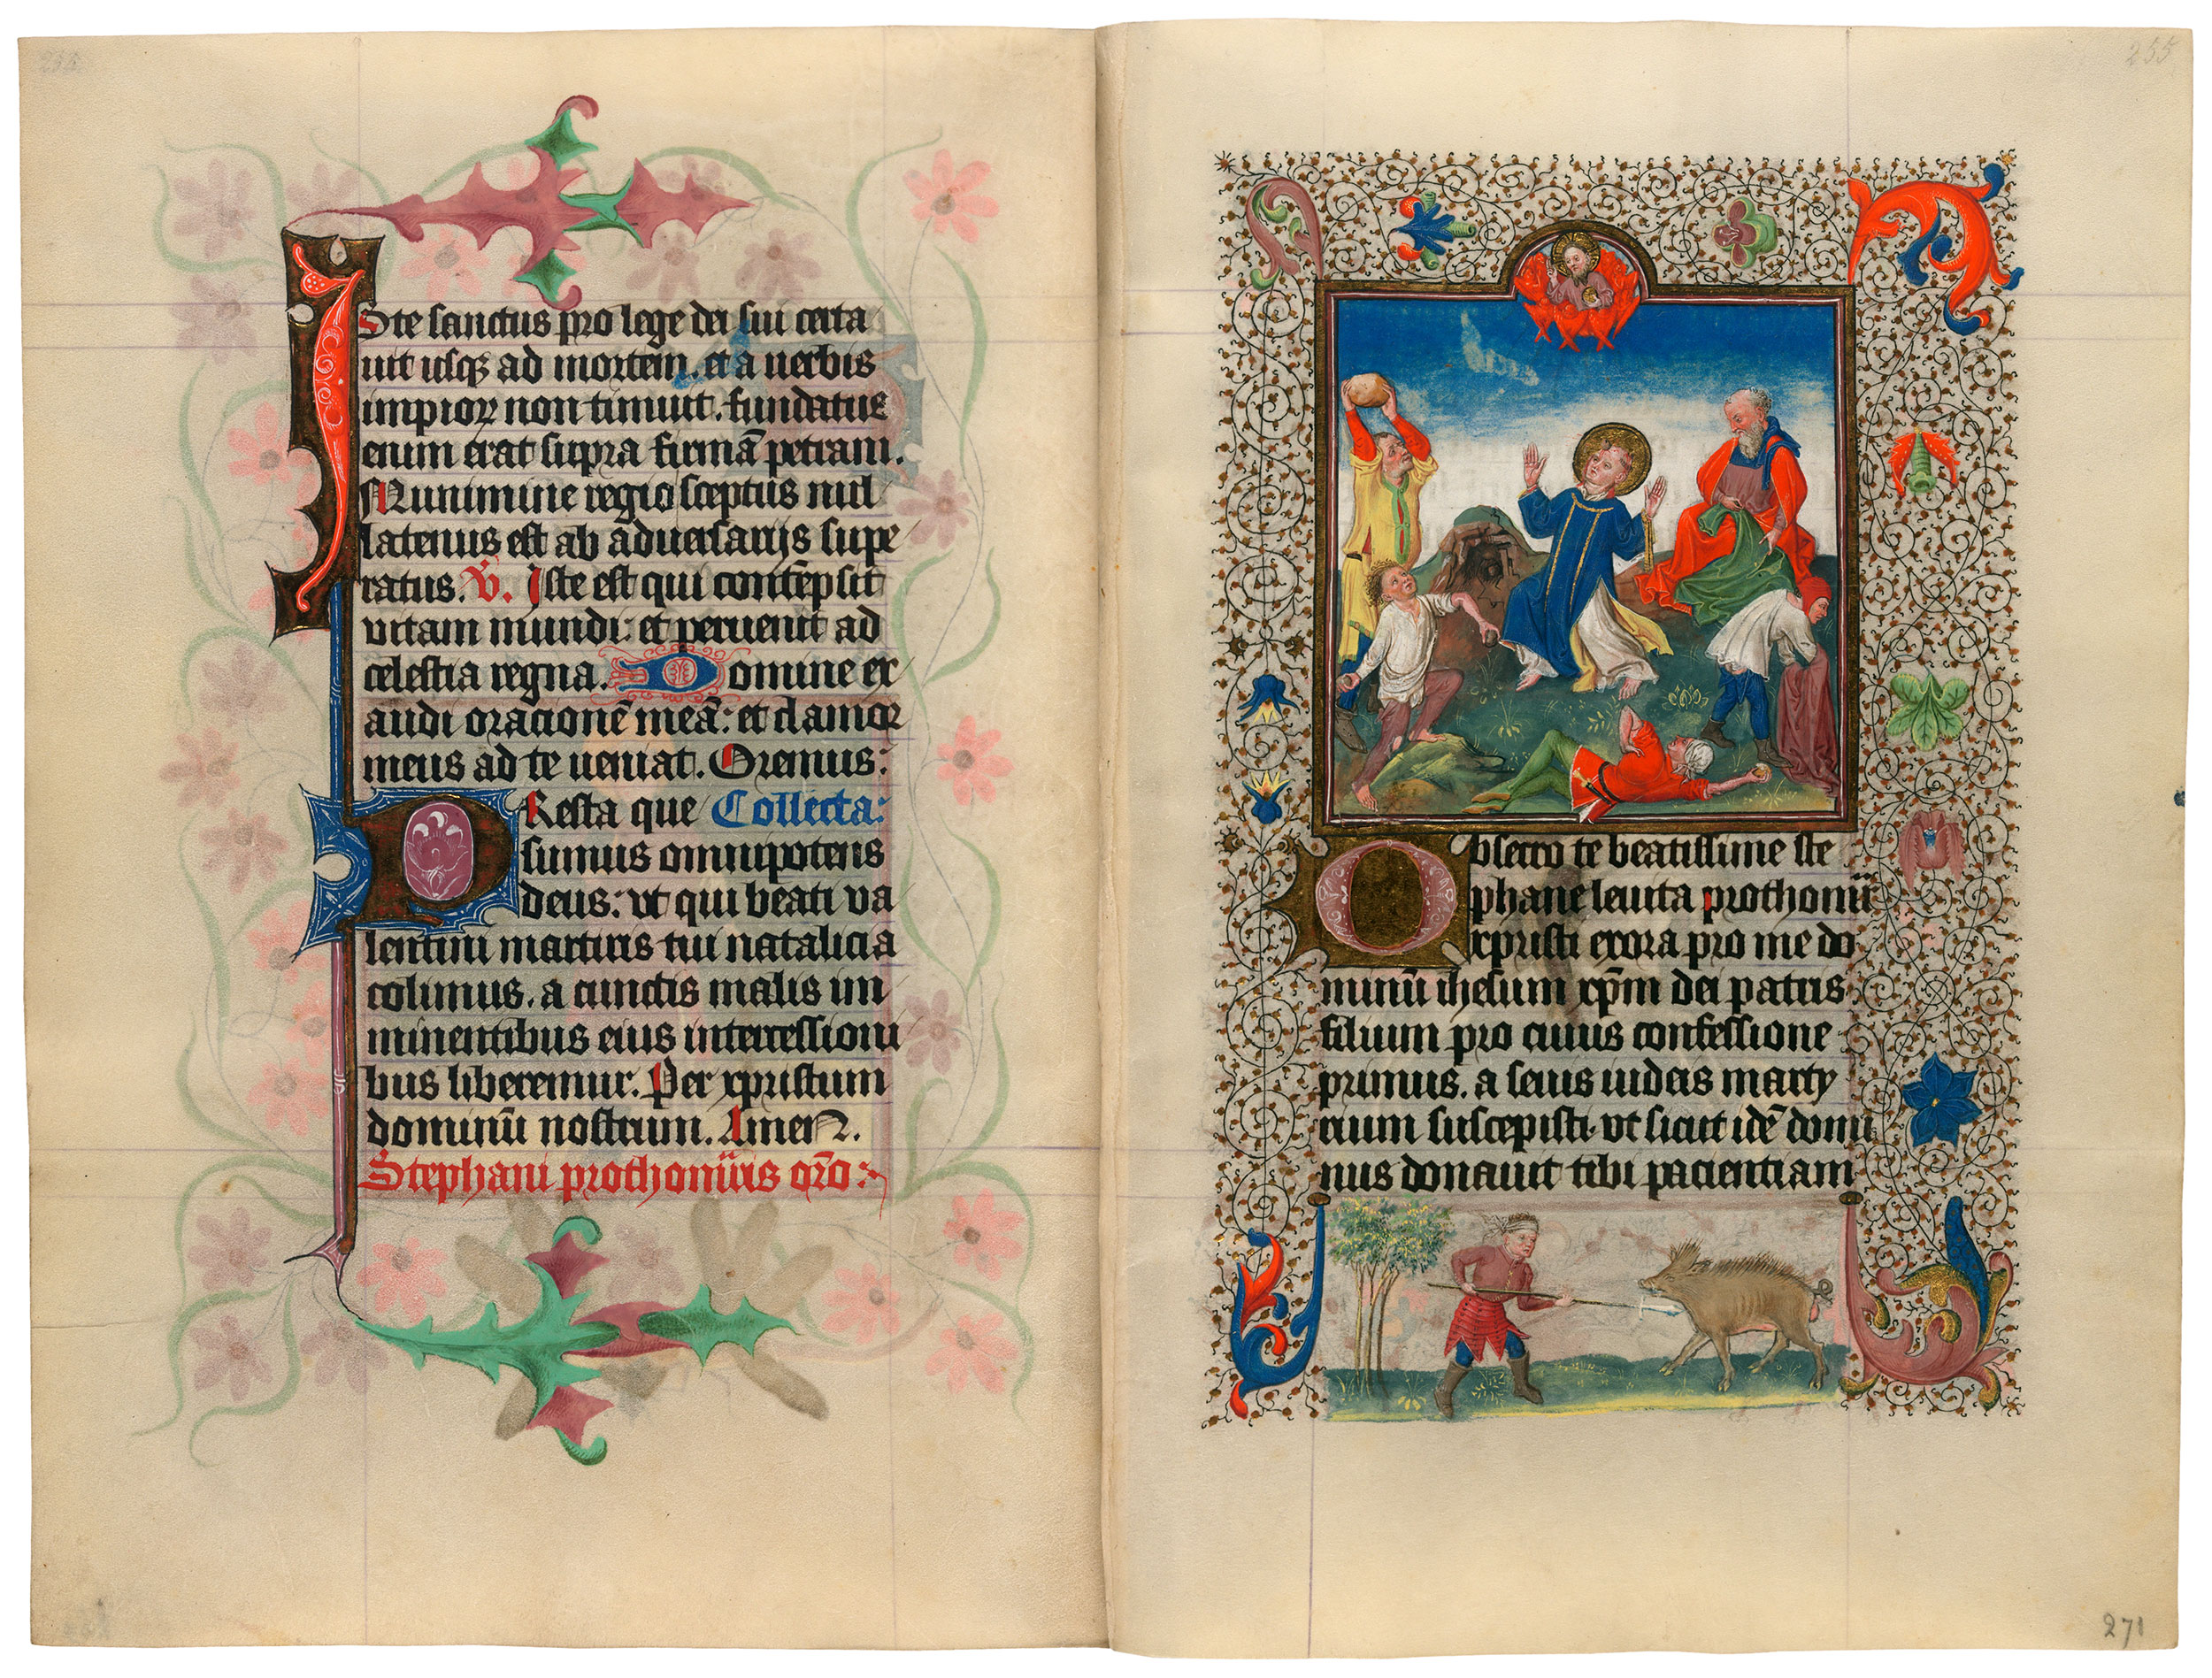 Iste sanctus pro lege dei sui certa
uit usq₃ ad mortem. et a uerbis
impioꝝ non timuit. fundatus
enim erat supra firmā petram.
Munimine regio sceptus nul
latenus est ab aduersarijs supe
ratus. V. Iste est qui contēpsit
vitam mundi: et peruenit ad
celestia regna. Domine ex
audi oracionē meā: et clamor
meus ad te ueniat. Oremus:
PResta que Collecta:
sumus omnipotens
deus: vt qui beati va
lentini martiris tui natalicia
colimus. a cunctis malis im
minentibus eius intercessioni
bus liberemur. Per xpristum
dominū nostrum. Amen.
Stephani prothom̄ris orō:
255
Obsecro te beatissime ste
phane leuita prothom̄r
xpristi exora pro me do
minū ihesum xp̄m dei patris
filium pro cuius confessione
primus. a seuis iudeis marty
rium suscepisti. vt sicut idē domi
nus donauit tibi pacientiam
271